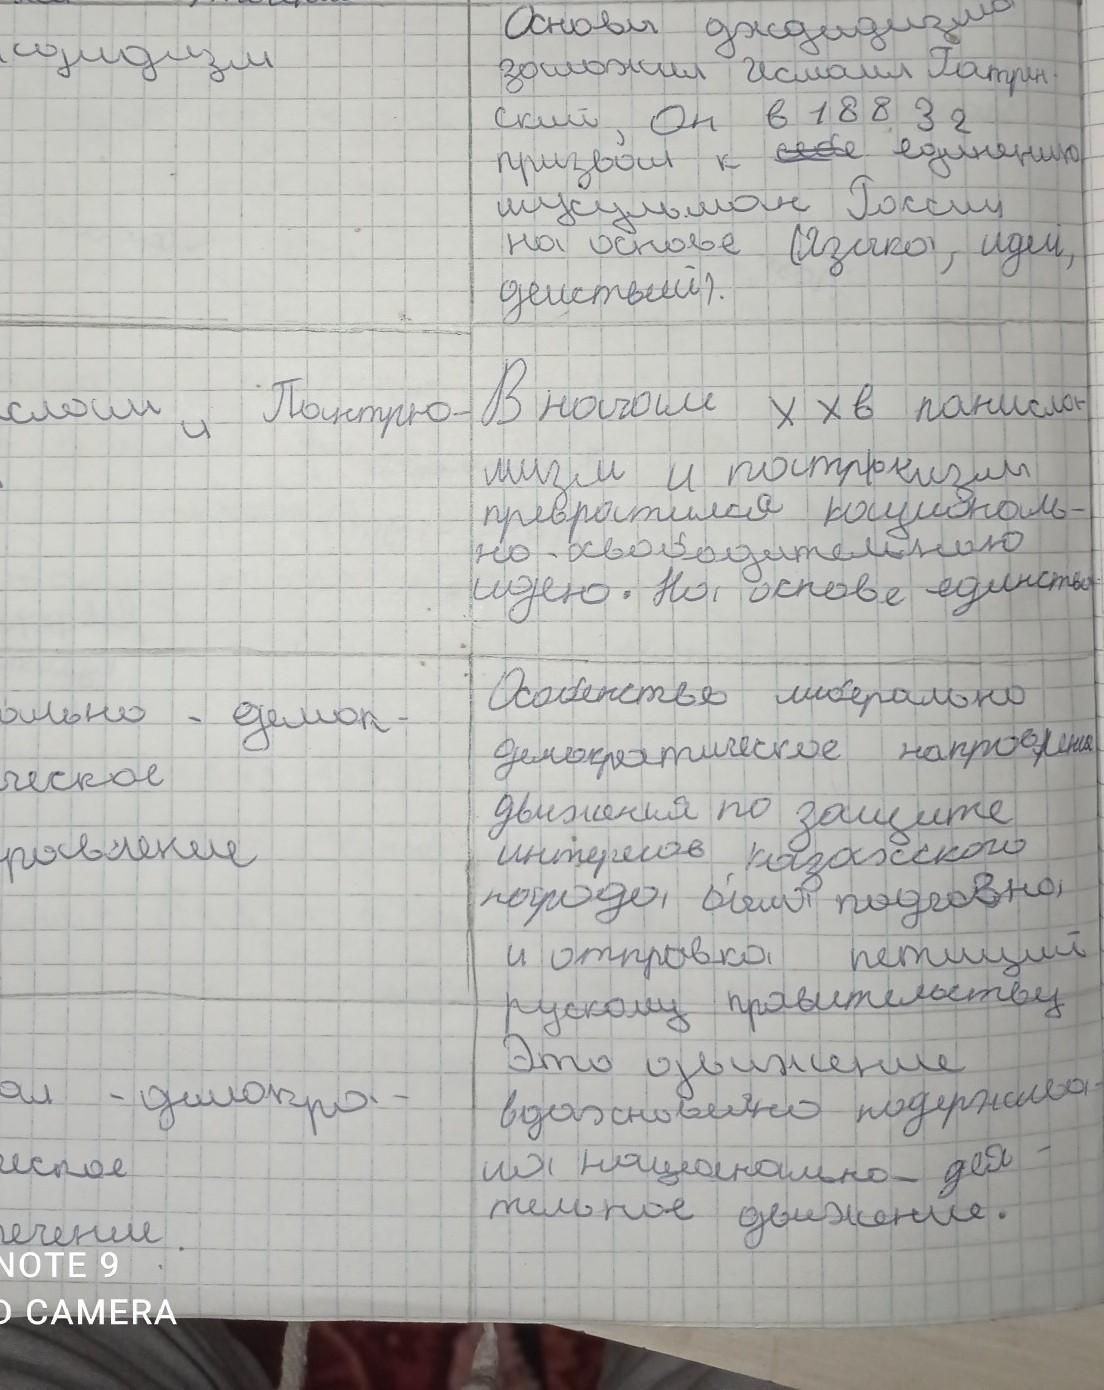 Основы джадидизма
заложил Исмаил Гасприн-
ский, Он в 1883 г
призвал к себе единению
мусульман России
на основе (Языка, идеи,
действий).
джадидизм
ислам и Пантрю-
В начале XX в панисла-
мизм и пантюркизм
превратился национально-
но-освободительною
идею. На основе единства
ально - демок-
ческое
равление
Особенство либерально
демократическое направления
движения по защите
интересов казахского
народа,
и отправка петиций
рускому правительству
ал - демокра-
ческое
течение.
Это движение
вдохновенно
национально- дея-
тельное движение.
NOTE 9
O CAMERA